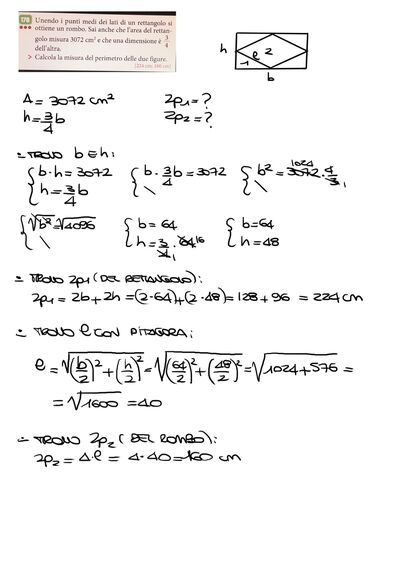 178 Unendo i punti medi dei lati di un rettangolo si
ottiene un rombo. Sai anche che l'area del rettan-
golo misura 3072 cm² e che una dimensione è 3/4
dell'altra.
> Calcola la misura del perimetro delle due figure.
[224 cm; 160 cm]
h 1 l 2
b
A = 3072 cm² 2p₁ = ?
h = 3/4 b 2p₂ = ?
∴ TROVO b E h:
{ b · h = 3072 { b · 3/4 b = 3072 { b² = 3072 · 4/3 1024 1
{ h = 3/4 b { \ { \
{ √b² = √4096 { b = 64 { b = 64
{ \ { h = 3/4 · 64 16 1 { h = 48
∴ TROVO 2p₁ (DEL RETTANGOLO):
2p₁ = 2b + 2h = (2·64) + (2·48) = 128 + 96 = 224 cm
∴ TROVO l CON PITAGORA:
l = √(b/2)² + (h/2)² = √(64/2)² + (48/2)² = √1024 + 576 =
= √1600 = 40
∴ TROVO 2p₂ (DEL ROMBO):
2p₂ = 4·l = 4·40 = 160 cm